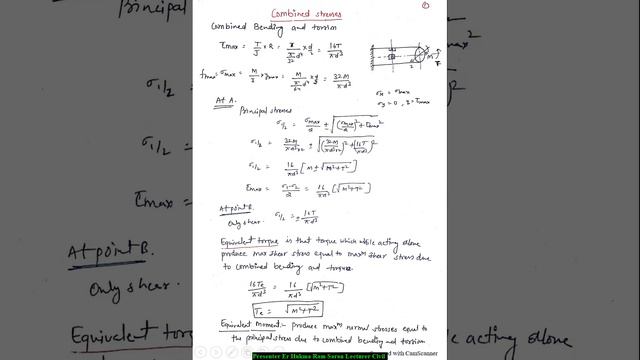 Combined stresses
①
Combined Bending and torsion
τmax = T/J × R = T/(π/32 d⁴) × d/2 = 16T/πd³
fmax = σmax = M/I × ymax = M/(π/64 d⁴) × d/2 = 32M/πd³
σx = σmax
σy = 0, τ = τmax
At A.
Principal stresses
σ1/2 = σmax/2 ± √((σmax/2)² + τmax²)
σ1/2 = 32M/πd³×2 ± √((32M/πd³×2)² + (16T/πd³)²)
σ1/2 = 16/πd³ [M ± √M²+T²]
τmax = σ1-σ2/2 = 16/πd³ [√M²+T²]
At point B.
Only shear. σ1/2 = ± 16T/πd³
Equivalent torque is that torque which while acting alone
produce max shear stress equal to maxm shear stress due
to combined bending and torque
16Te/πd³ = 16/πd³ [√M²+T²]
Te = √M²+T²
Equivalent moment - produce maxm normal stresses equal to
the principal stress due to combined bending and torsion
Presenter Er Hukma Ram Saran Lecturer Civil
ed with CamScanner
Principal
σ1/2
σ1/2
τmax =
At point B.
Only shear.
Equivalent
le acting alone